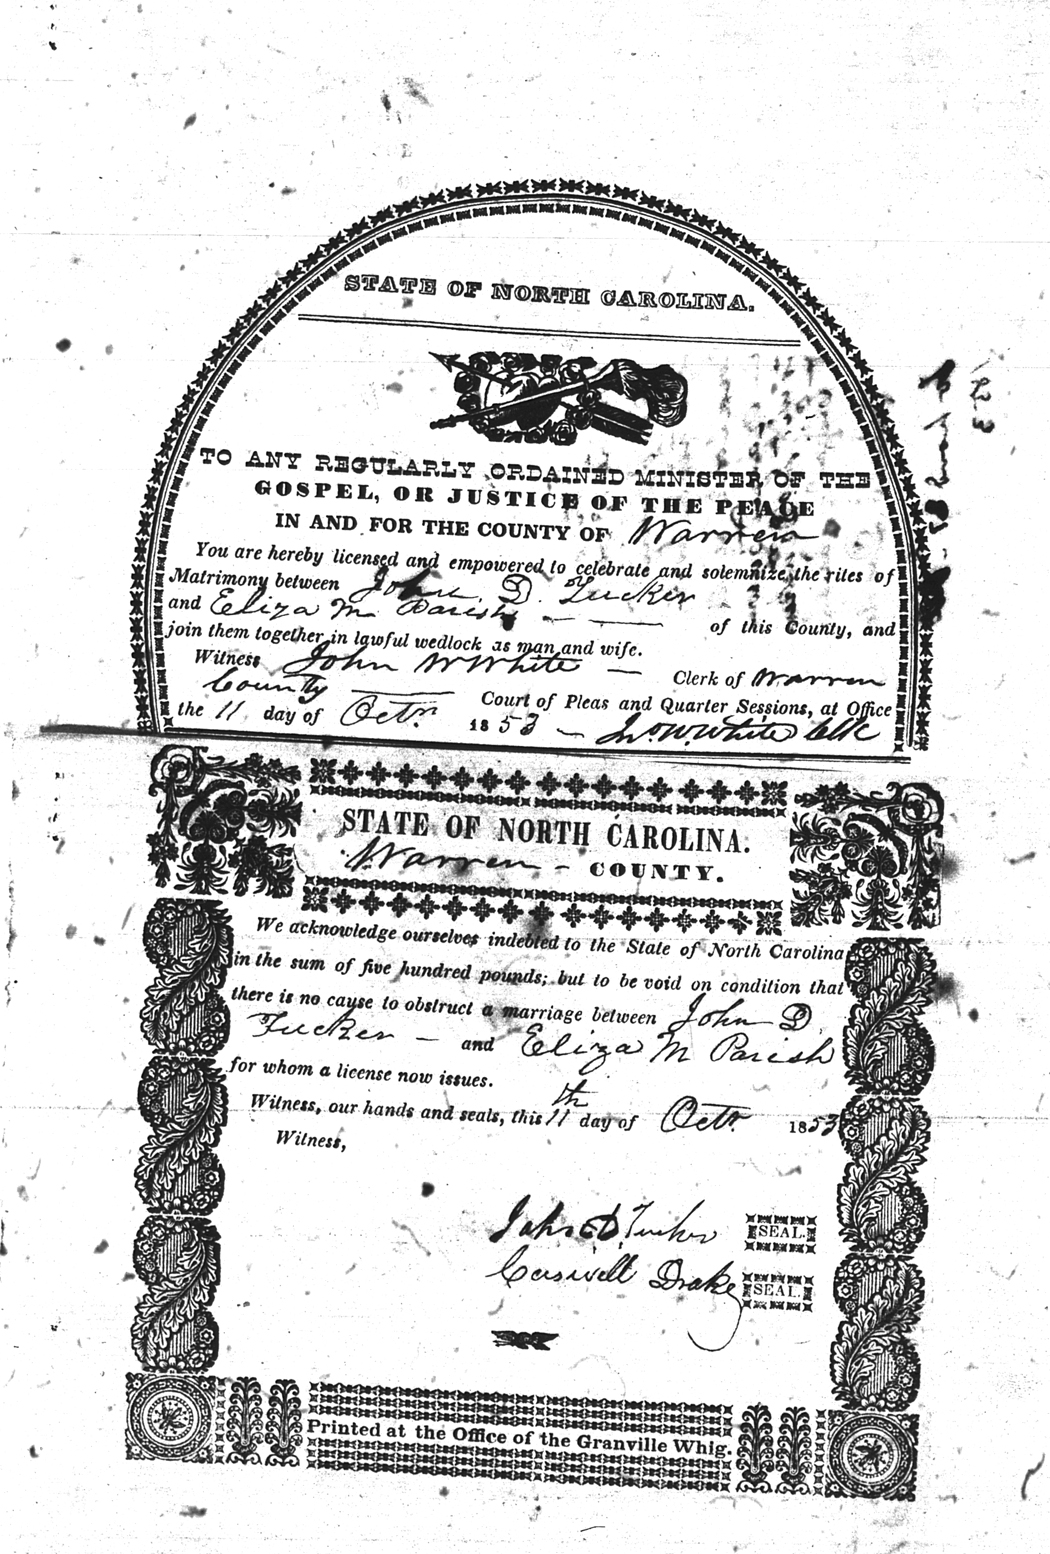 STATE OF NORTH CAROLINA.
TO ANY REGULARLY ORDAINED MINISTER OF THE
GOSPEL, OR JUSTICE OF THE PEACE
IN AND FOR THE COUNTY OF Warren
You are hereby licensed and empowered to celebrate and solemnize the rites of
Matrimony between John D. Tucker
and Eliza M Parish — — of this County, and
join them together in lawful wedlock as man and wife.
Witness John W White — Clerk of Warren
County — Court of Pleas and Quarter Sessions, at Office
the 11 day of Octr 1853 — Jno W. White Clk
STATE OF NORTH CAROLINA.
Warren — COUNTY.
We acknowledge ourselves indebted to the State of North Carolina
in the sum of five hundred pounds; but to be void on condition that
there is no cause to obstruct a marriage between John D.
Tucker — and Eliza M Parish
for whom a license now issues.
Witness, our hands and seals, this 11th day of Octr 1853
Witness,
John D. Tucker SEAL.
Caswell Drake SEAL.
Printed at the Office of the Granville Whig.